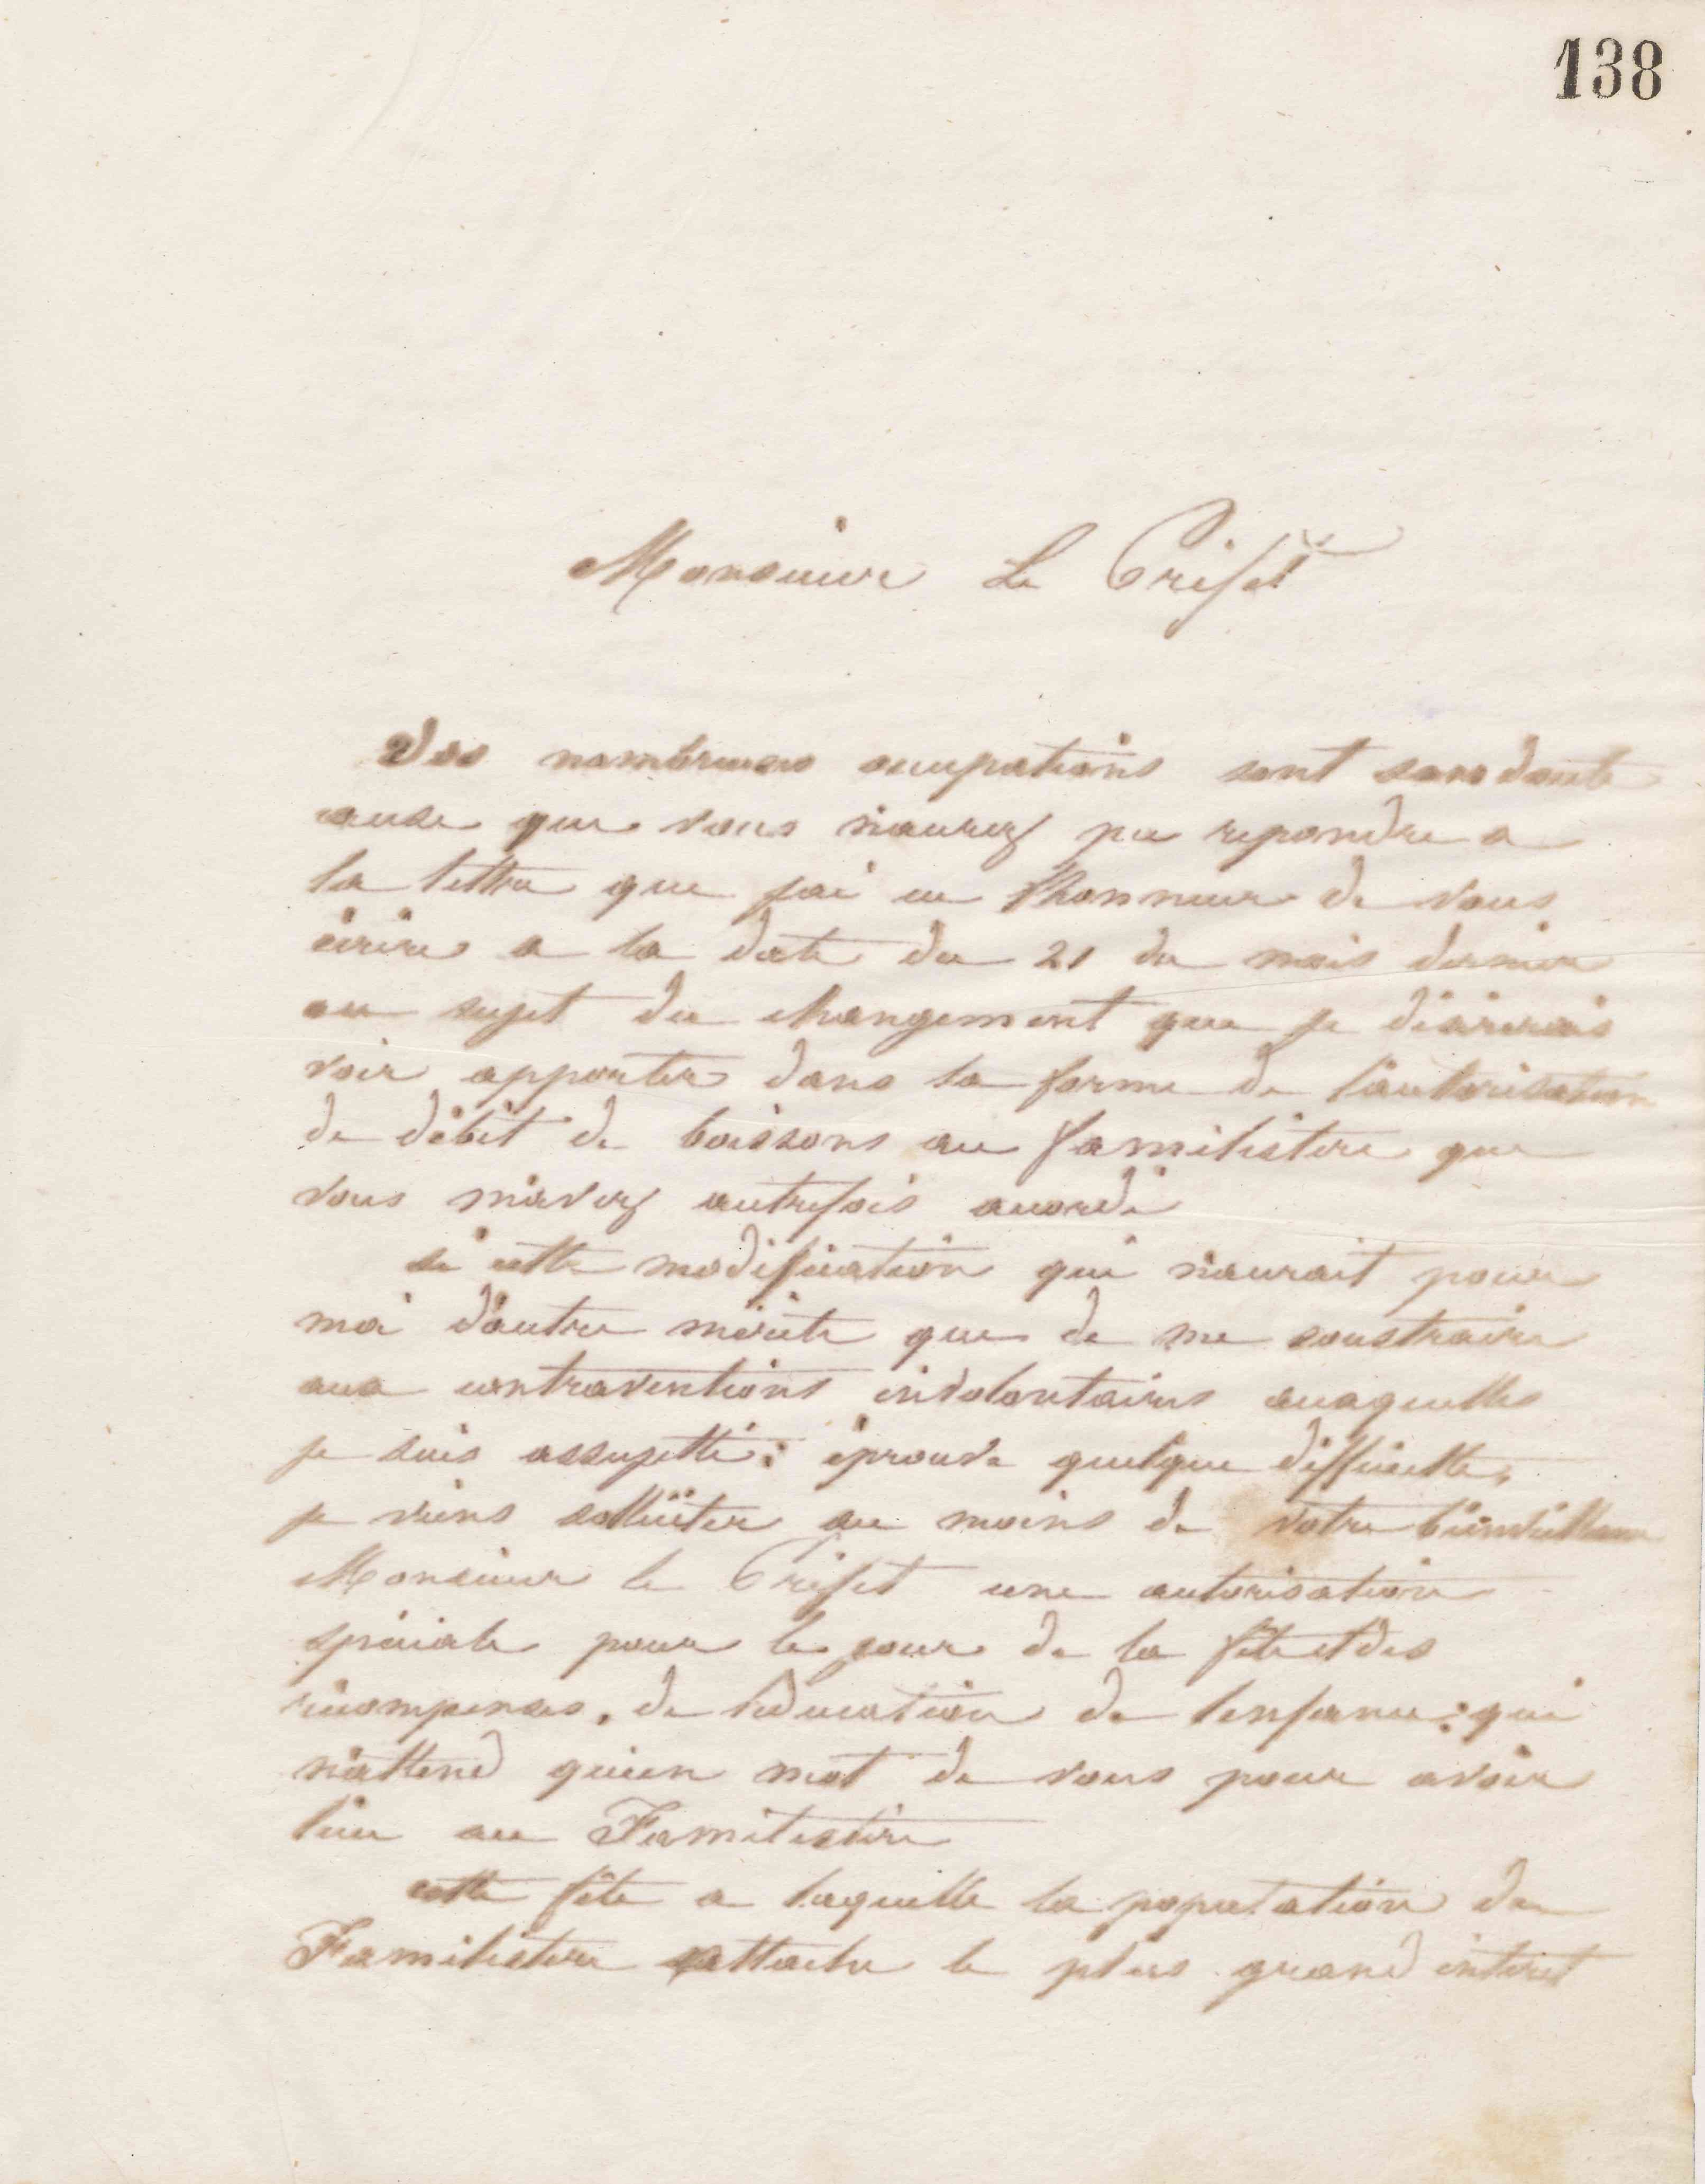 138
Monsieur Le Préfet
Vos nombreuses occupations sont sans doute
cause que vous n'aurez pu repondre a
la lettre que j'ai eu l'honneur de vous
écrire a la date du 21 du mois dernier
au sujet du changement que je désirerais
voir apporter dans la forme de l'autorisation
de débit de boissons au familistère que
vous m'avez autrefois accordé
si cette modification qui n'aurait pour
moi d'autre mérite que de me soustraire
aux contraventions involontaires auxquelles
je suis assujetti: éprouve quelque difficulté,
je viens solliciter au moins de votre bienveillance
Monsieur le Préfet une autorisation
spéciale pour le jour de la fête et des
récompenses, de l'éducation de l'enfance: qui
n'attend qu'un mot de vous pour avoir
lieu au Familistère
cette fête a laquelle la population du
Familistère attache le plus grand intéret